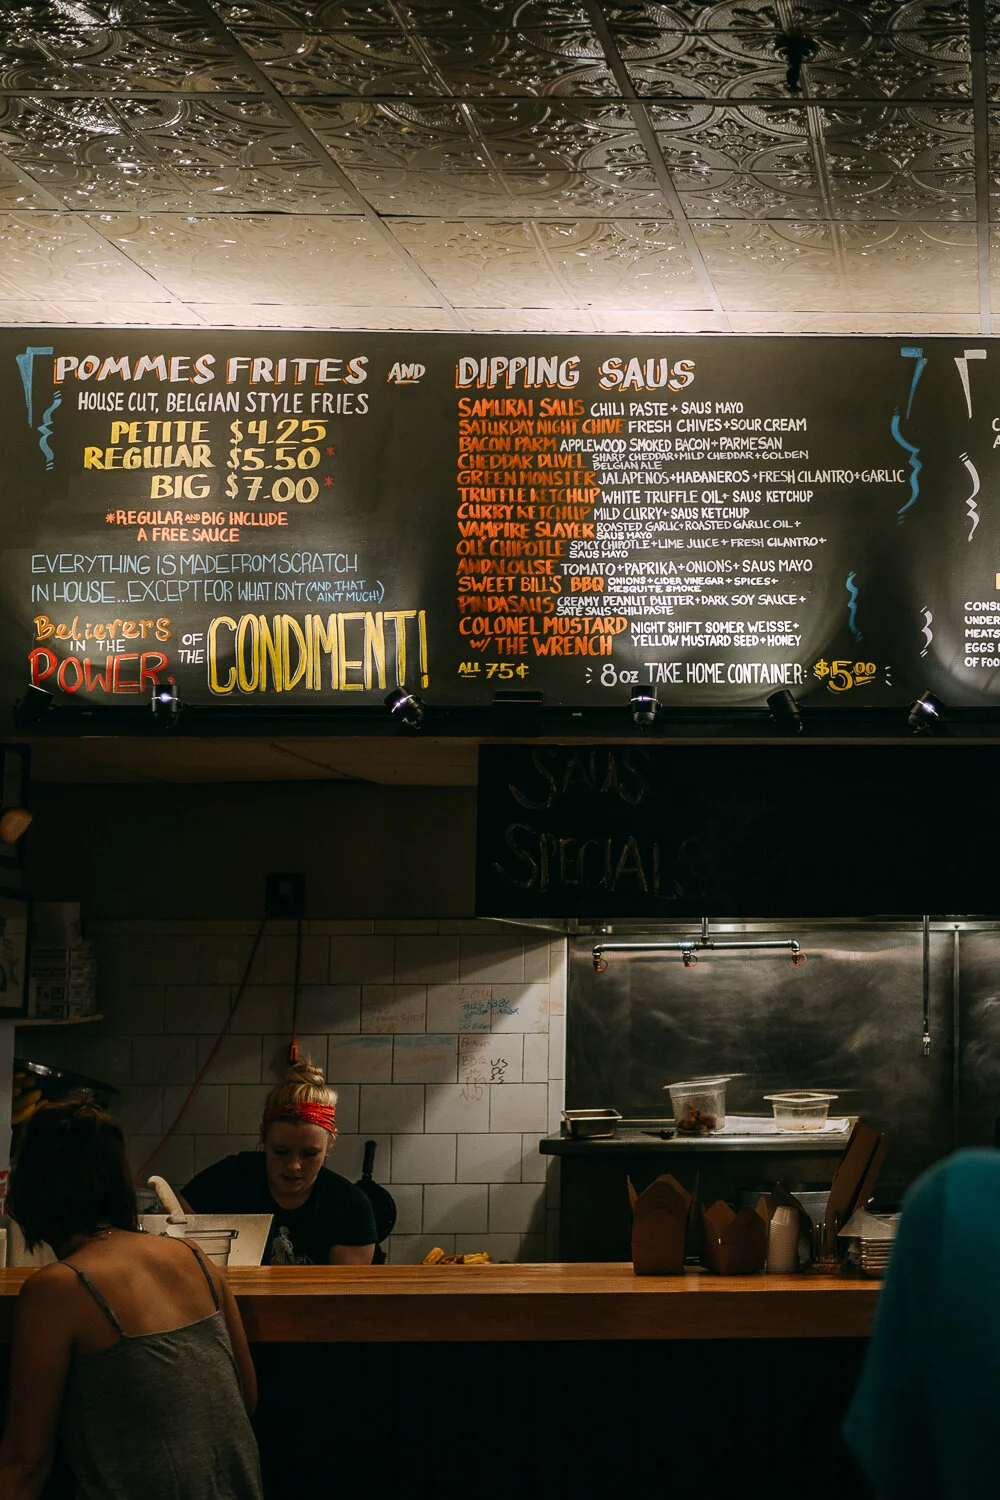 POMMES FRITES AND
HOUSE CUT, BELGIAN STYLE FRIES
PETITE $4.25
REGULAR $5.50 *
BIG $7.00 *
*REGULAR AND BIG INCLUDE
A FREE SAUCE
EVERYTHING IS MADE FROM SCRATCH
IN HOUSE...EXCEPT FOR WHAT ISN'T (AND THAT AIN'T MUCH!)
Believers
IN THE
POWER,
OF
THE
CONDIMENT!
DIPPING SAUS
SAMURAI SAUS CHILI PASTE + SAUS MAYO
SATURDAY NIGHT CHIVE FRESH CHIVES + SOUR CREAM
BACON PARM APPLEWOOD SMOKED BACON + PARMESAN
CHEDDAR DUVEL SHARP CHEDDAR + MILD CHEDDAR + GOLDEN
BELGIAN ALE
GREEN MONSTER JALAPENOS + HABANEROS + FRESH CILANTRO + GARLIC
TRUFFLE KETCHUP WHITE TRUFFLE OIL + SAUS KETCHUP
CURRY KETCHUP MILD CURRY + SAUS KETCHUP
VAMPIRE SLAYER ROASTED GARLIC + ROASTED GARLIC OIL +
SAUS MAYO
OLE CHIPOTLE SPICY CHIPOTLE + LIME JUICE + FRESH CILANTRO +
SAUS MAYO
ANDALOUSE TOMATO + PAPRIKA + ONIONS + SAUS MAYO
SWEET BILL'S BBQ ONIONS + CIDER VINEGAR + SPICES +
MESQUITE SMOKE
PINDASAUS CREAMY PEANUT BUTTER + DARK SOY SAUCE +
SATE SAUS + CHILI PASTE
COLONEL MUSTARD NIGHT SHIFT SOMER WEISSE +
W/ THE WRENCH YELLOW MUSTARD SEED + HONEY
ALL 75¢
8oz TAKE HOME CONTAINER: $5.00
CONSU
UNDER
MEATS
EGGS
OF FOO
SAUS
SPECIALS